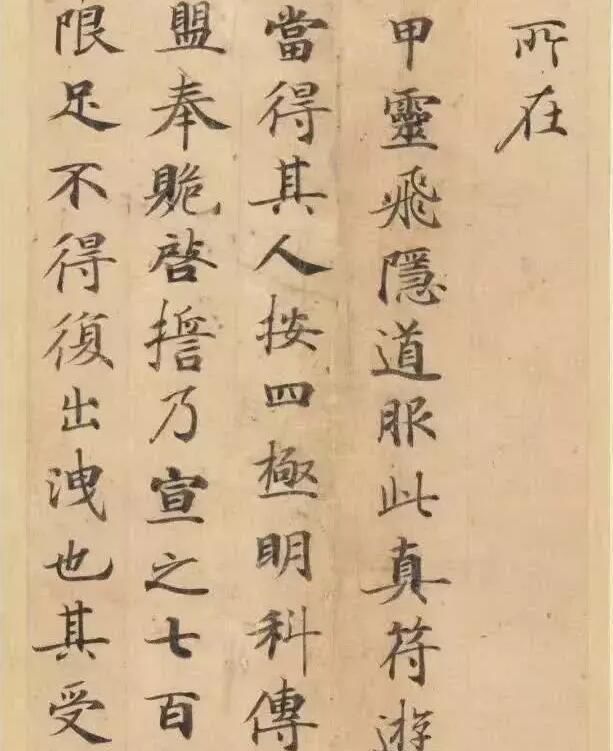 所在
甲靈飛隱道服此真符遊
當得其人按四極明科傳
盟奉贈啓擔乃宣之七百
限足不得復出洩也其受